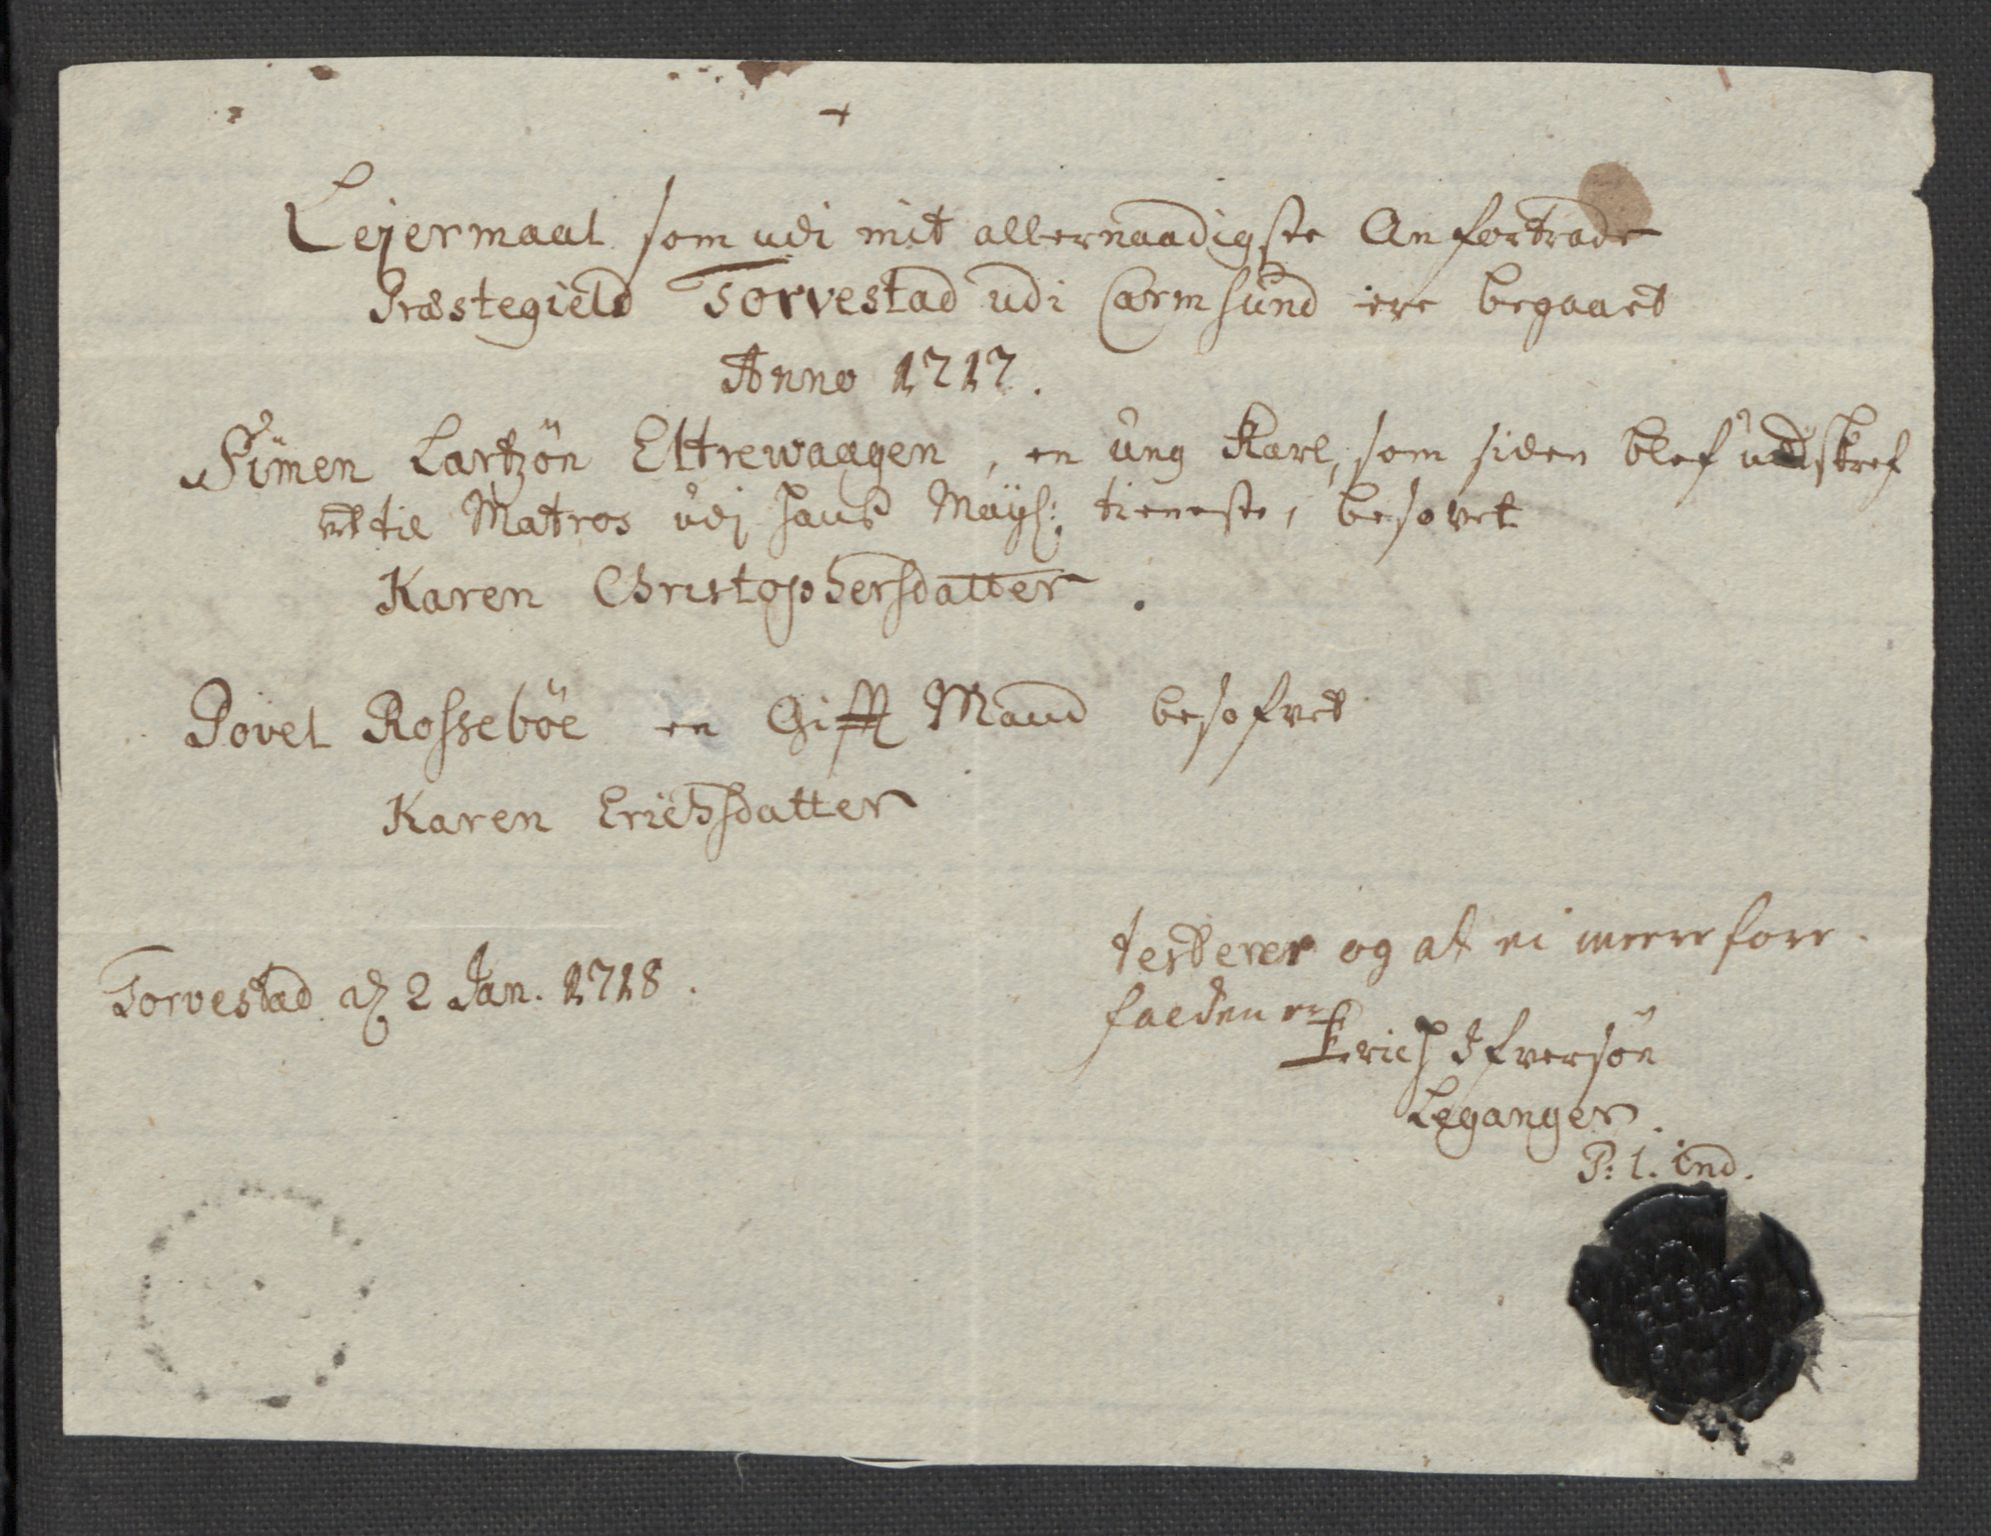 Lejermaal som udi mit allernaadigste Anfortrode
Præstegield Torvestad udi Carmsund ere begaaet
Anno 1717.
Simen Lartzön Eltrewaagen, en ung Karl, som siden blef udskref
et til Matros udj Hans Mayſ: tieneste, besovet
Karen Christophersdatter.
Povel Rosseböe en Gifft Mand besofvet
Karen Erichsdatter
testerer og at ei meere fore
Torvestad d 2 Jan. 1718.
falden er
Erich Ifversön
Leganger.
P: l. ind.